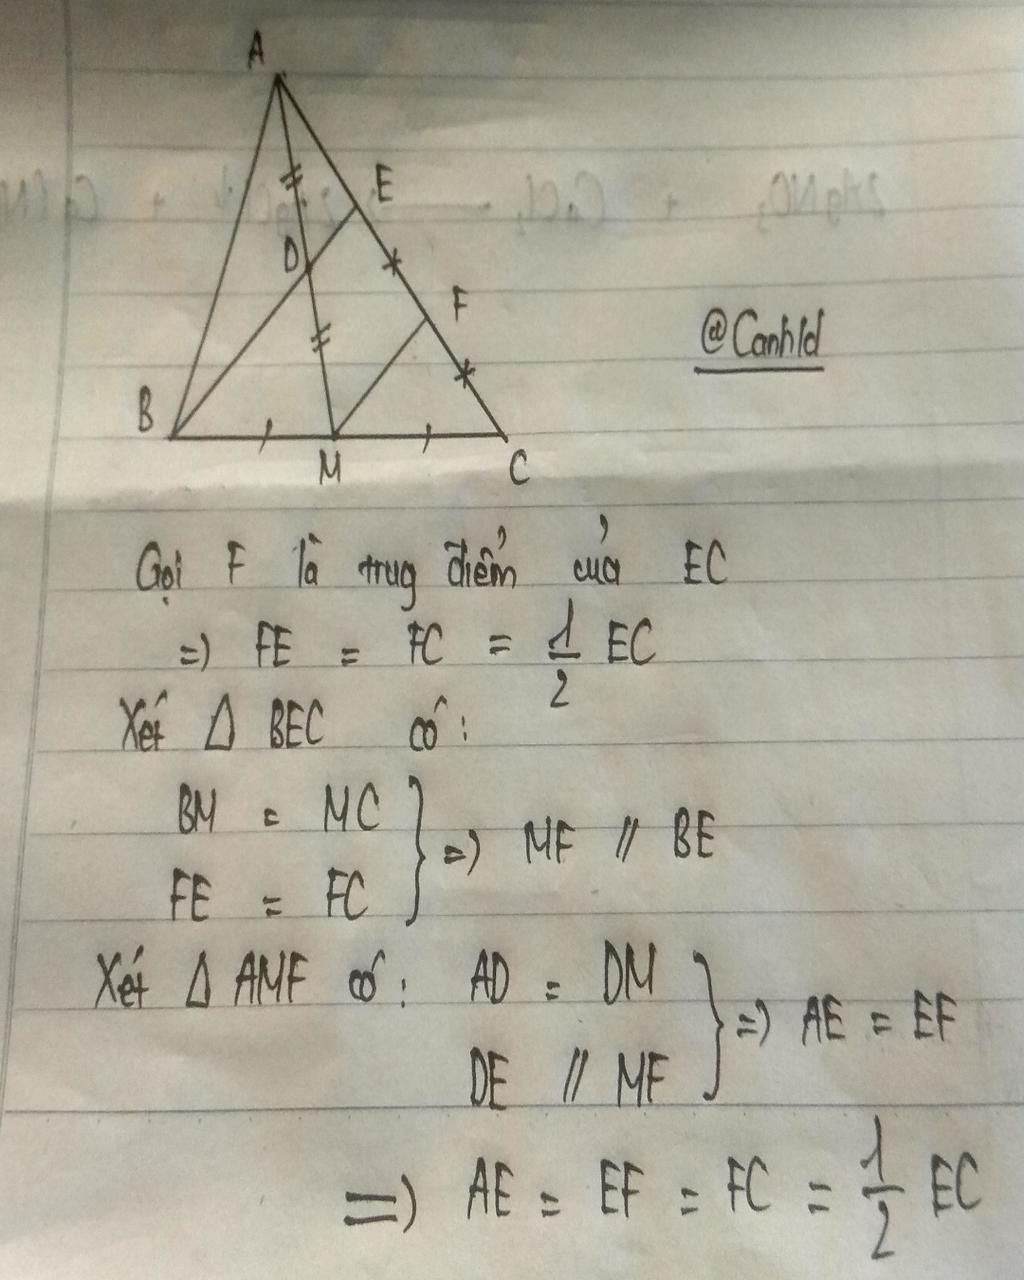 A
E
D
F
@Canhld
B
M
C
Gọi F là trug điểm của EC
=) FE = FC = 1/2 EC
Xét Δ BEC có:
BM = MC
FE = FC
=) MF // BE
Xét Δ AMF có: AD = DM
DE // MF
=) AE = EF
=) AE = EF = FC = 1/2 EC